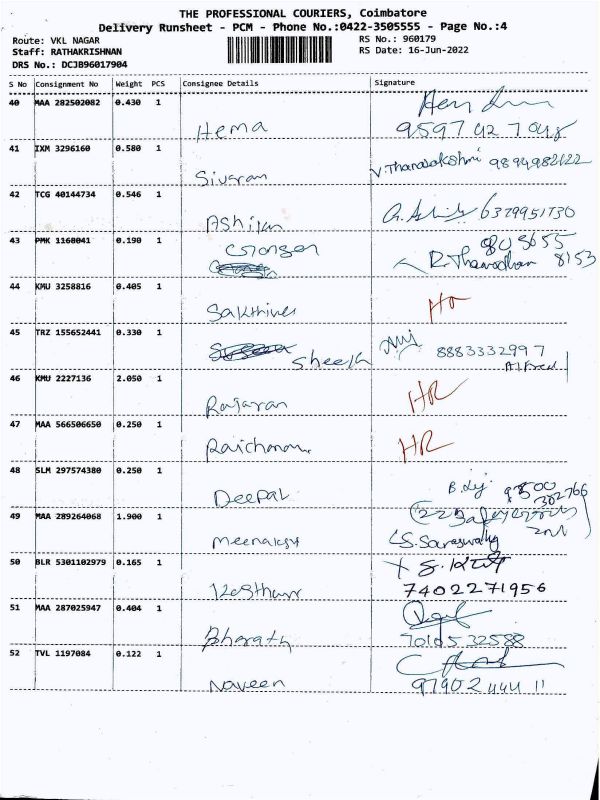 THE PROFESSIONAL COURIERS, Coimbatore
Delivery Runsheet - PCM - Phone No.:0422-3505555 - Page No.:4
Route: VKL NAGAR RS No.: 960179
Staff: RATHAKRISHNAN RS Date: 16-Jun-2022
DRS No.: DCJB96017904
S No Consignment No Weight PCS Consignee Details Signature
40 MAA 282502082 0.430 1
Hema
41 IXM 3296160 0.580 1
V. Thanalakshmi
Sivaram
42 TCG 40144734 0.546 1
6379951730
43 PMK 1160041 0.190 1
805655
8153
44 KMU 3258816 0.405 1
Sakthivel
45 TRZ 155652441 0.330 1
8883332997
Sheeth
Alfred
46 KMU 2227136 2.050 1 HR
Rajaran
47 MAA 566506650 0.250 1 HR
48 SLM 297574380 0.250 1
Deepak
49 MAA 289264068 1.900 1
S. Saraswathy
50 BLR 5301102979 0.165 1
7402271956
51 MAA 287025947 0.404 1
Bharath 7010532588
52 TVL 1197084 0.122 1
Naveen 9790244411